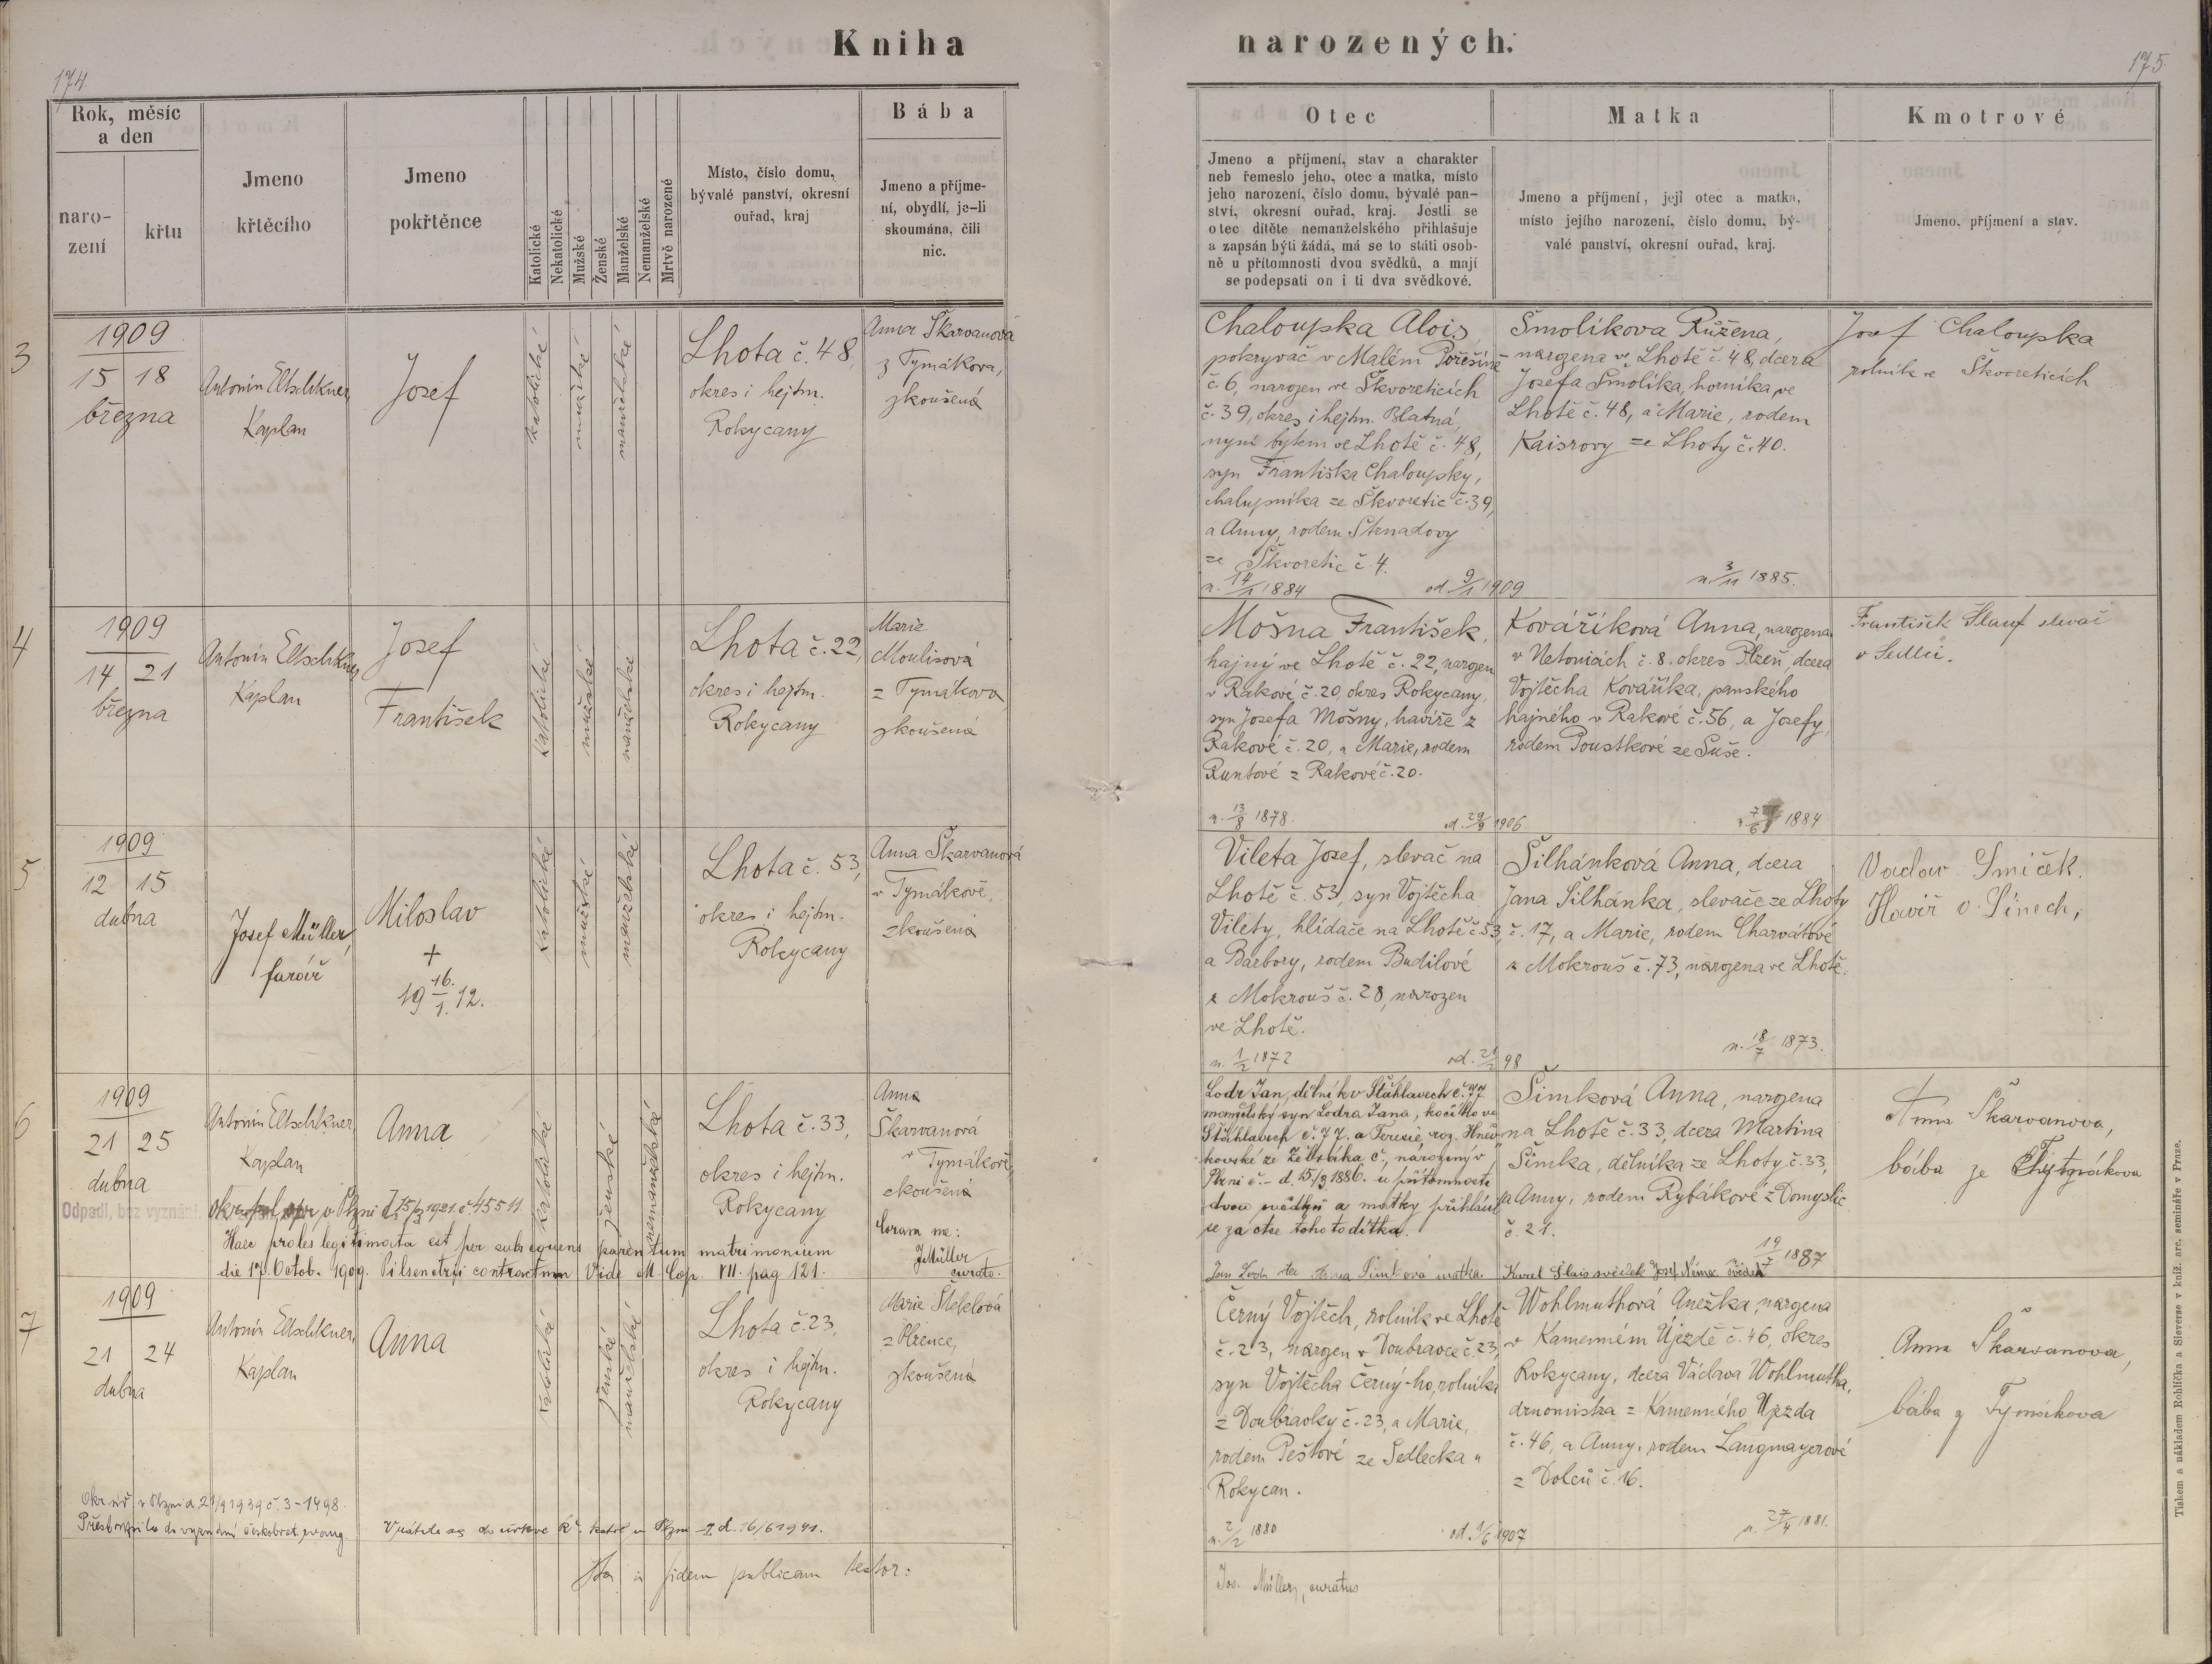 Kniha
narozených.
174.
175
Rok, měsíc
a den
naro-
zení
křtu
Jmeno
křtěcího
Jmeno
pokřtěnce
Katolické
Nekatolické
Mužské
Ženské
Manželské
Nemanželské
Mrtvě narozené
Místo, číslo domu,
bývalé panství, okresní
ouřad, kraj
Bába
Jmeno a příjme-
ní, obydlí, je-li
skoumána, čili
nic.
Otec
Jmeno a příjmení, stav a charakter
neb řemeslo jeho, otec a matka, místo
jeho narození, číslo domu, bývalé pan-
ství, okresní ouřad, kraj. Jestli se
otec dítěte nemanželského přihlašuje
a zapsán býti žádá, má se to státi osob-
ně u přítomnosti dvou svědků, a mají
se podepsati on i ti dva svědkové.
Matka
Jmeno a příjmení, její otec a matka,
místo jejího narození, číslo domu, bý-
valé panství, okresní ouřad, kraj.
Kmotrové
Jmeno, příjmení a stav.
3
1909
15 18
března
Antonín Eltschkner,
Kaplan
Josef
katolické
mužské
manželské
Lhota č. 48,
okres i hejtm.
Rokycany
Anna Škarvanová
z Tymákova,
zkoušená
Chaloupka Alois,
pokryvač v Malém Pořešíně
č. 6, narozen ve Škvoreticích
č. 39, okres i hejtm. Blatná,
nyní bytem ve Lhotě č. 48,
syn Františka Chaloupky,
chalupníka ze Škvoretic č. 39,
a Anny, rodem Strnadovy
ze Škvoretic č. 4.
n. 14/1 1884 od. 9/1 1909
Šmolíkova Růžena,
narozena ve Lhotě č. 48, dcera
Josefa Šmolíka, horníka ve
Lhotě č. 48, a Marie, rodem
Kaisrovy ze Lhoty č. 40.
n. 3/11 1885.
Josef Chaloupka
rolník ve Škvoreticích
4
1909
14 21
března
Antonín Eltschkner,
Kaplan
Josef
František
katolické
mužské
manželské
Lhota č. 22,
okres i hejtm.
Rokycany
Marie
Moulisová
z Tymákova
zkoušená
Mošna František,
hajný ve Lhotě č. 22, narozen
v Rakové č. 20, okres Rokycany,
syn Josefa Mošny, havíře z
Rakové č. 20, a Marie, rodem
Runtové z Rakové č. 20.
n. 13/8 1878. od. 29/9 1906.
Kováříková Anna, narozena
v Netonicích č. 8. okres Plzeň, dcera
Vojtěcha Kováříka, panského
hajného v Rakové č. 56, a Josefy,
rodem Poustkové ze Suše.
1884
František Hauf slevač
v Sedlci.
5
1909
12 15
dubna
Josef Müller,
farář
Miloslav
+
19 16./1. 12.
katolické
mužské
manželské
Lhota č. 53,
okres i hejtm.
Rokycany
Anna Škarvanová
v Tymákově,
zkoušená
Vileta Josef, slevač na
Lhotě č. 53, syn Vojtěcha
Vilety, hlídače na Lhotě č. 53,
a Barbory, rodem Budilové
z Mokrouš č. 28, narozen
ve Lhotě.
n. 1/2 1872 od. 21/2 98
Šilhánková Anna, dcera
Jana Šilhánka, slevače ze Lhoty
č. 17, a Marie, rodem Charvátové
z Mokrouš č. 73, narozena ve Lhotě.
n. 18/7 1873.
Václav Smíček.
Havíř v Línech,
6
1909
21 25
dubna
Antonín Eltschkner,
Kaplan
Anna
katolické
ženské
nemanželské
Lhota č. 33,
okres i hejtm.
Rokycany
Anna
Škarvanová
v Tymákově,
zkoušená
Coram me:
JMüller
curato.
Odpadl, bez vyznání.
v Plzni 15/3 1921. č. 45511.
Haec proles legitimata est per subsequens parentum matrimonium
die 17. Octob. 1909. Pilsenetzii contractum Vide M. Cop. VII. pag 121.
Lodr Jan, dělník v Šťáhlavech č. 77
manželský syn Lodra Jana, kočího ve
Šťáhlavech č. 77. a Terezie, roz. Hněv-
kovské ze Žebráka č., narozený v
Plzni č. - d. 15./3 1886. u přítomnosti
dvou svědků a matky přihlásil
se za otce tohoto dítka.
Jan Lodr otec Anna Šimková matka
Šimková Anna, narozena
na Lhotě č. 33, dcera Martina
Šimka, dělníka ze Lhoty č. 33,
a Anny, rodem Rybákové z Domyslic
č. 21.
19/7 1887
Karel Šlais svědek Josef Němec svědek
Anna Škarvanova,
bába ze Tymákova
7
1909
21 24
dubna
Antonín Eltschkner,
Kaplan
Anna
katolické
ženské
manželské
Lhota č. 23,
okres i hejtm.
Rokycany
Marie Šteklová
z Plzence,
zkoušená
Černý Vojtěch, rolník ve Lhotě
č. 23, narozen v Doubravce č. 23,
syn Vojtěcha Černý-ho, rolníka
z Doubravky č. 23, a Marie,
rodem Peštové ze Sedlecka u
Rokycan.
n. 2/2 1880 od. 1/6 1907
Wohlmuthová Anežka, narozena
v Kamenném Újezdě č. 46, okres
Rokycany, dcera Václava Wohlmutha,
drnomistra z Kamenného Újezda
č. 46, a Anny, rodem Langmayerové
z Dolců č. 16.
n. 27/4 1881.
Anna Škarvanova,
bába z Tymákova
Okr. úř. v Plzni d. 21/9 1939 č. 3-1498.
Přestoupila do vyznání českobrat. evang.
Vrátila se do církve ř. katol. v Plzni d. 16/6 1941.
in fidem publicam testor:
Jos. Müller, curatus
Tiskem a nákladem Rohlíčka a Sieverse v kníž. arc. semináře v Praze.